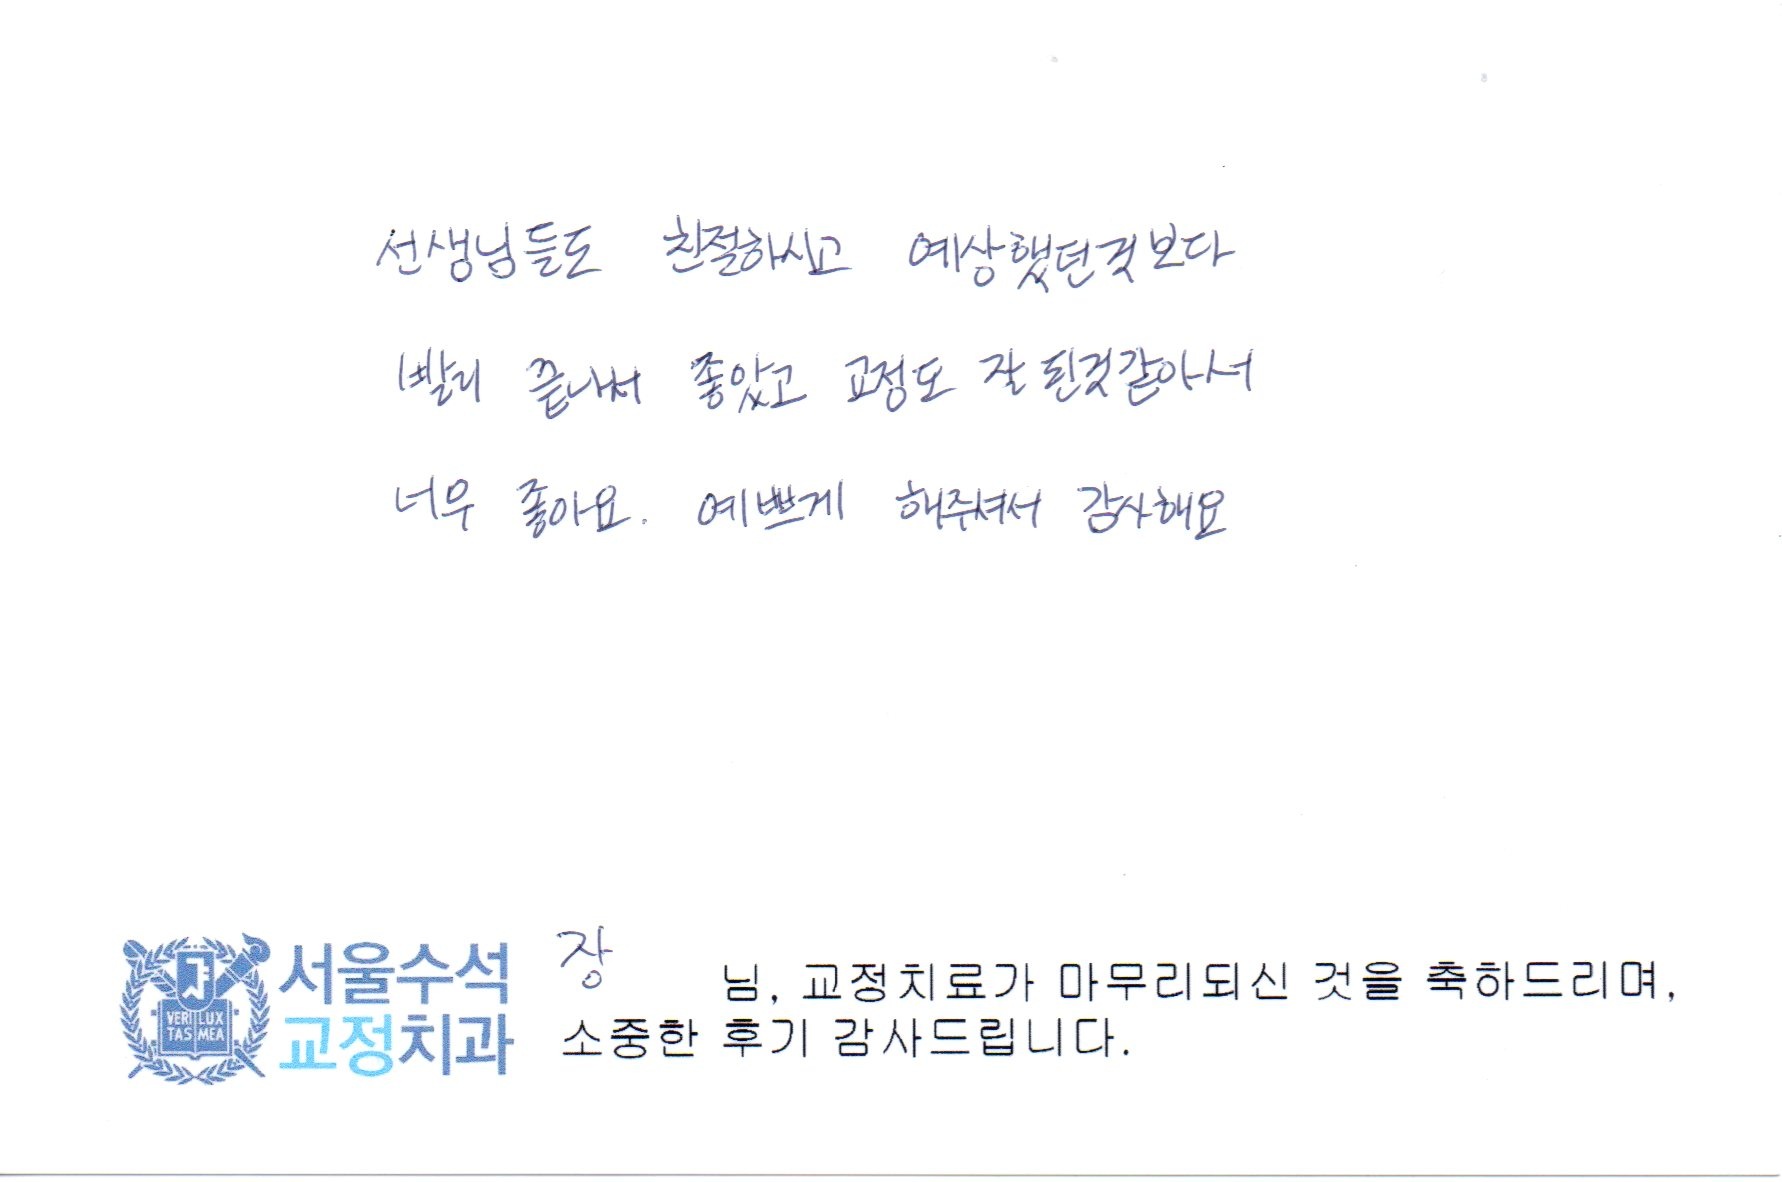 선생님들도 친절하시고 예상했던것보다
빨리 끝나서 좋았고 교정도 잘 된것같아서
너우 좋아요. 예쁘게 해주셔서 감사해요
VERI LUX
TAS MEA
서울수석
교정치과
장 님, 교정치료가 마무리되신 것을 축하드리며,
소중한 후기 감사드립니다.